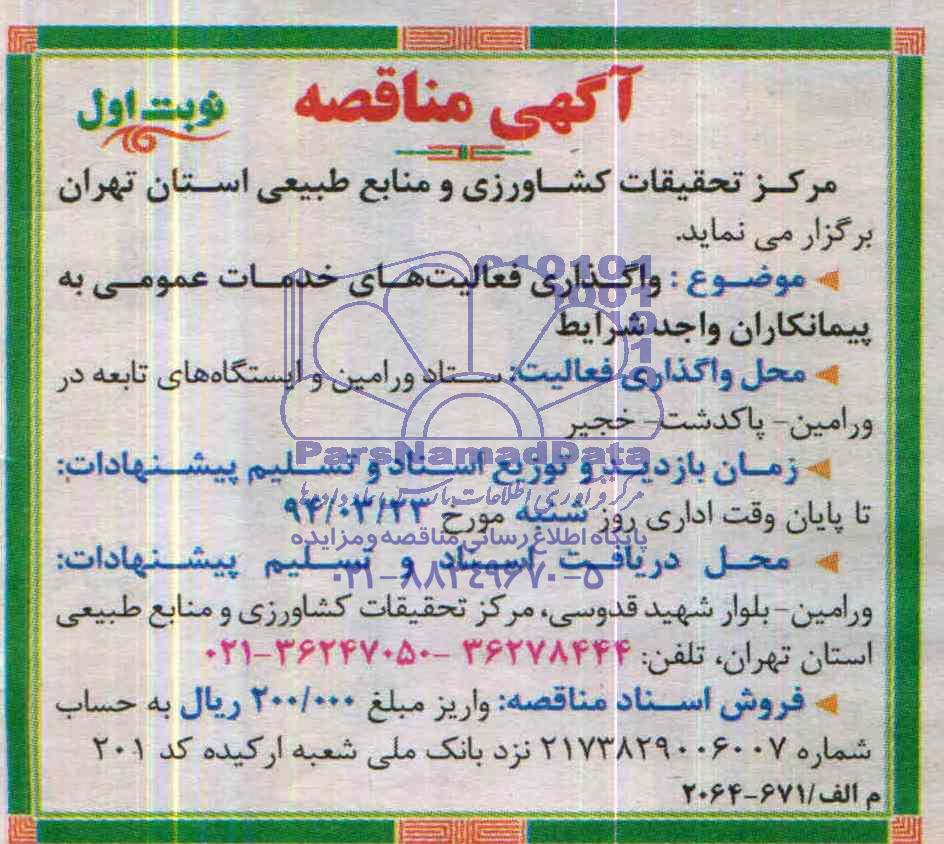 آگهی مناقصه
نوبت اول
مرکز تحقیقات کشاورزی و منابع طبیعی استان تهران
برگزار می نماید.
موضوع : واگذاری فعالیت‌های خدمات عمومی به
پیمانکاران واجد شرایط
محل واگذاری فعالیت: ستاد ورامین و ایستگاه‌های تابعه در
ورامین- پاکدشت- خجیر
زمان بازدید و توزیع اسناد و تسلیم پیشنهادات:
تا پایان وقت اداری روز شنبه مورخ ۹۴/۰۳/۲۳
محل دریافت اسناد و تسلیم پیشنهادات:
ورامین- بلوار شهید قدوسی، مرکز تحقیقات کشاورزی و منابع طبیعی
استان تهران، تلفن: ۳۶۲۷۸۴۴۴ -۰۲۱-۳۶۲۴۷۰۵۰
فروش اسناد مناقصه: واریز مبلغ ۲۰۰/۰۰۰ ریال به حساب
شماره ۲۱۷۳۸۲۹۰۰۶۰۰۷ نزد بانک ملی شعبه ارکیده کد ۲۰۱
م الف/۶۷۱-۲۰۶۴
ParsNamadData
پایگاه اطلاع رسانی مناقصه و مزایده
۰۲۱-۸۸۳۴۹۶۷۰-۵